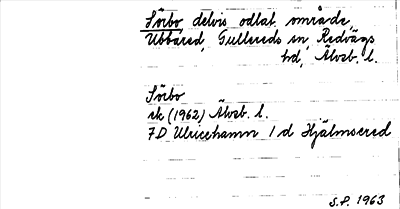 Sörbo delvis odlat område,
Ubbared, Gullereds sn, Redvägs
hd, Älvsb. l.
Sörbo
rk (1962) Älvsb. l.
7D Ulricehamn 1 d Hjälmsered
S.P. 1963